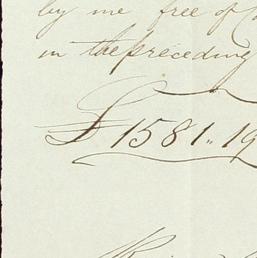 by me free of
in the preceding
£ 1581.. 19